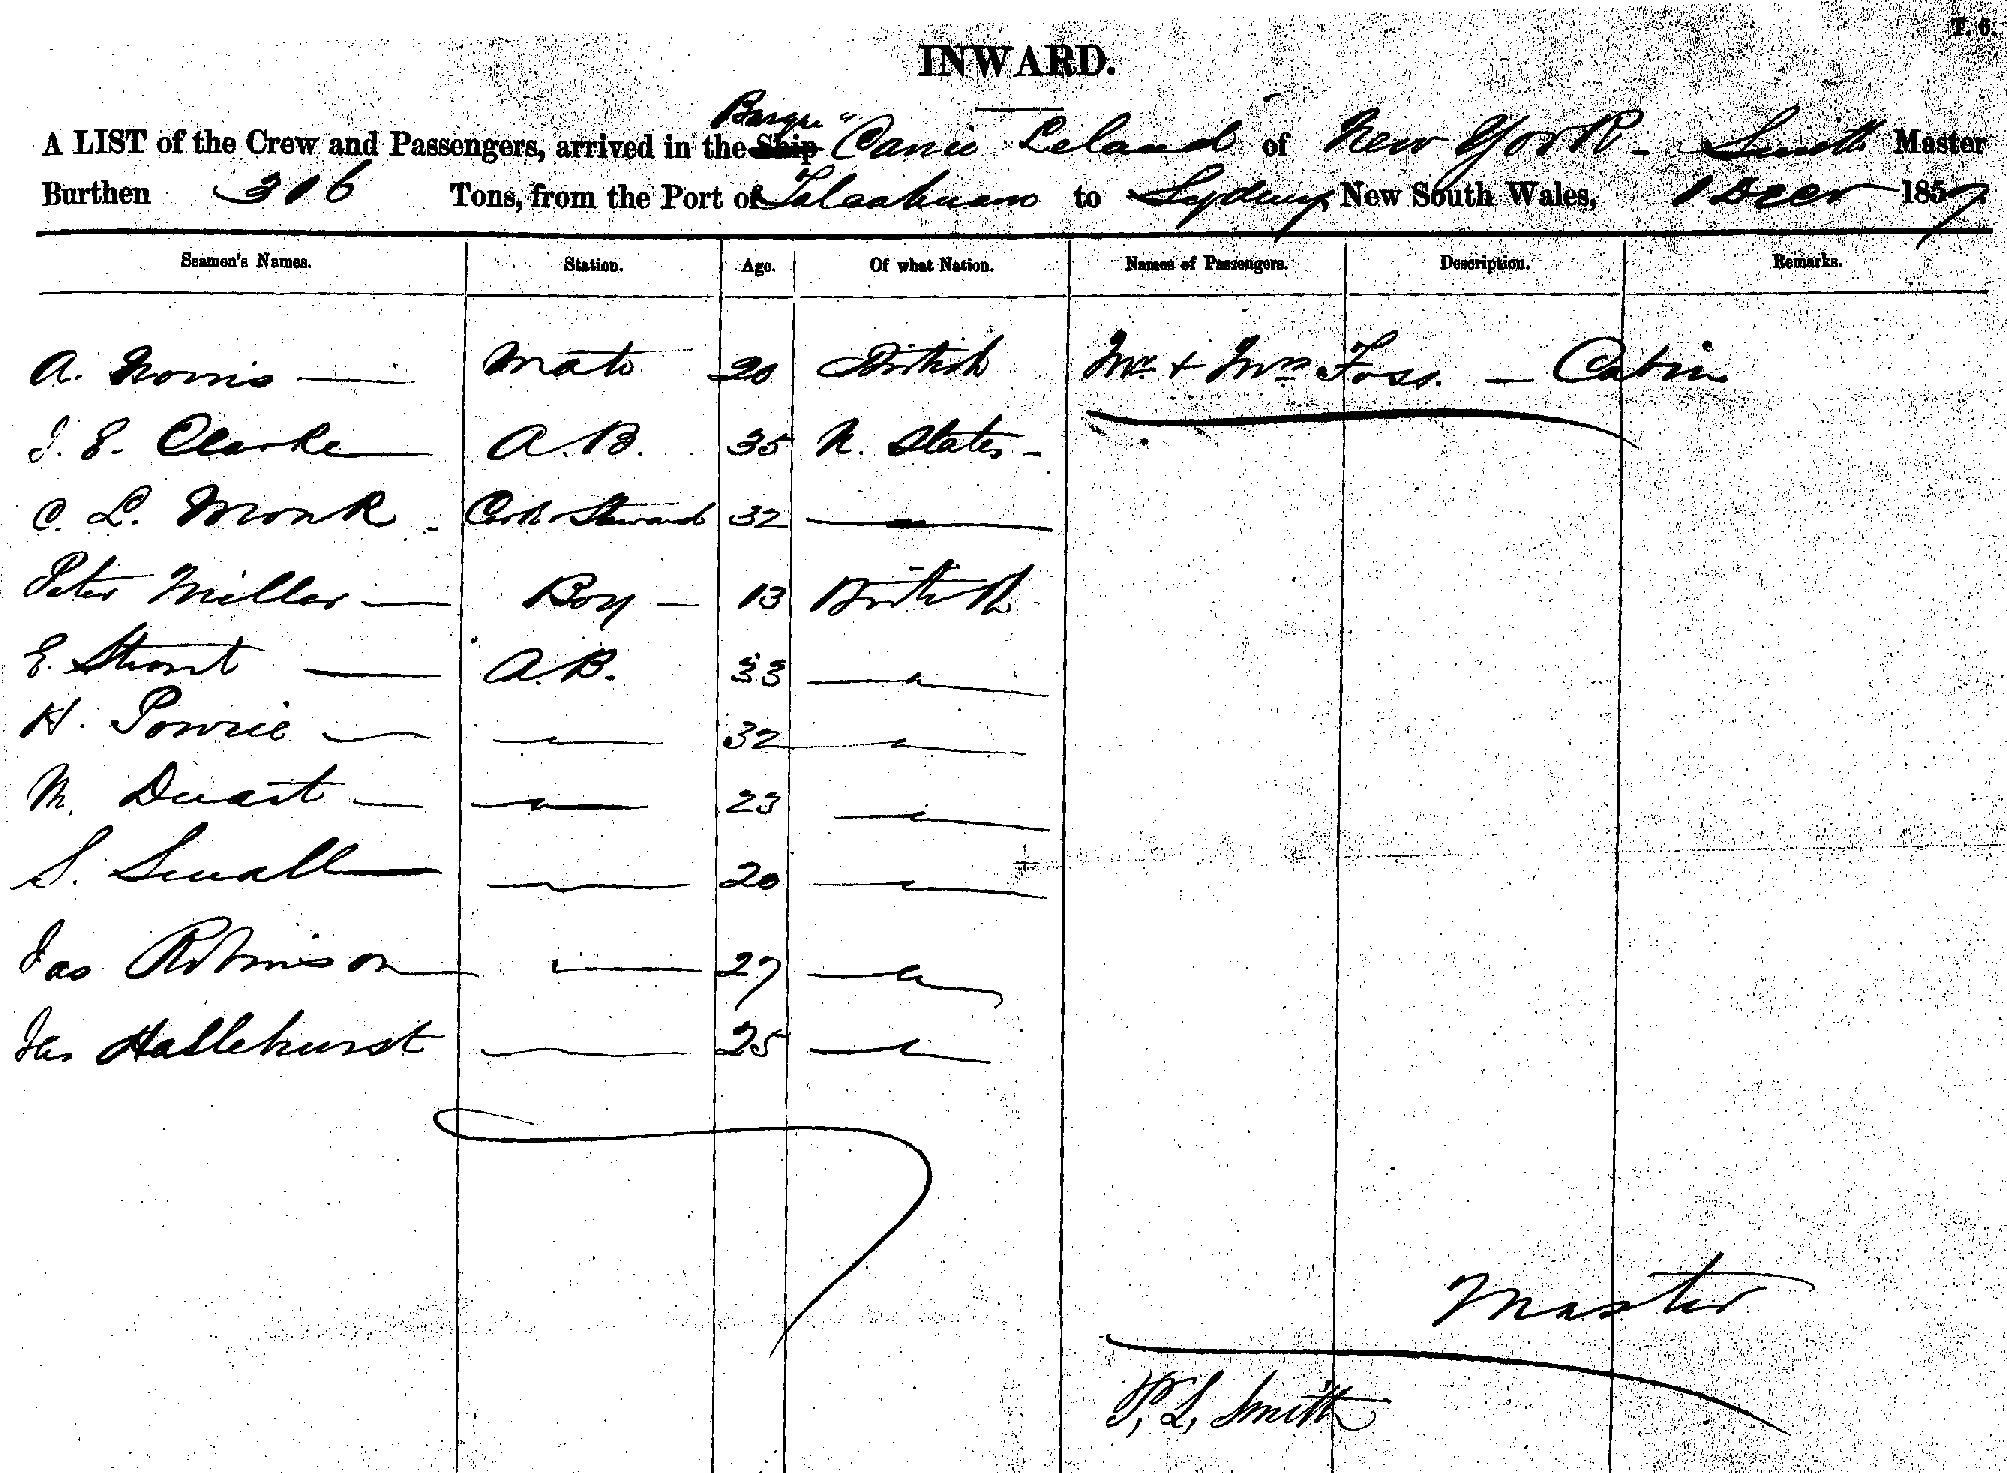 T. 6.
INWARD.
Barque
A LIST of the Crew and Passengers, arrived in the Ship "Canie Leland of New York - Smith Master
Burthen 306 Tons, from the Port of Talcahuano to Sydney, New South Wales, 1 Decr 1857.
Seamen's Names. Station. Age. Of what Nation. Names of Passengers. Description. Remarks.
A. Norris — Mate 20 British Mr. + Mrs Foss. — Cabin
J. E. Clarke — A.B. 35 U. States -
C. L. Monk - Cook & Steward 32 — " —
Peter Miller — Boy — 13 British
E. Stuart — A.B. 33 — " —
H. Powrie — — " — 32 — " —
M. Duart — — " — 23 — " —
S. Small — — " — 20 — " —
Jas Robinson — — " — 27 — " —
Jas Haslehurst — " — 25 — " —
Master
P. L. Smith